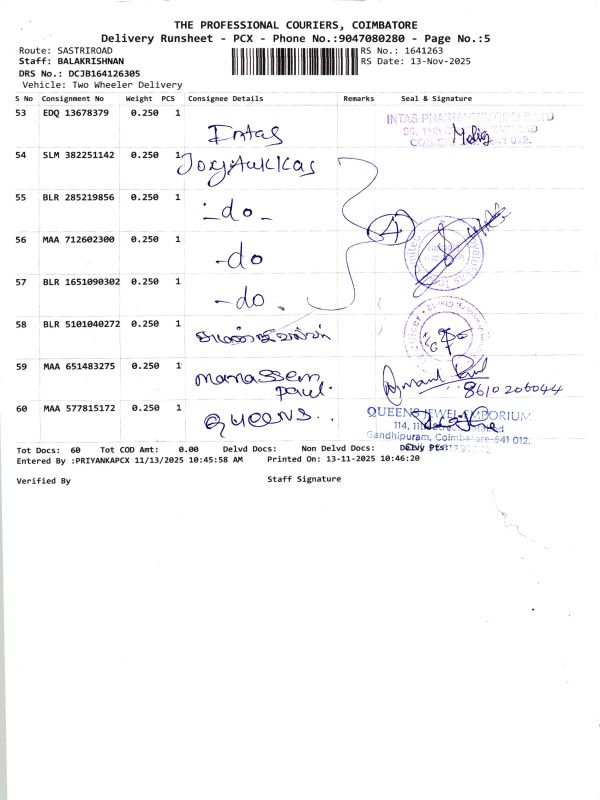 THE PROFESSIONAL COURIERS, COIMBATORE
Delivery Runsheet - PCX - Phone No.:9047080280 - Page No.:5
Route: SASTRIROAD
RS No.: 1641263
Staff: BALAKRISHNAN
RS Date: 13-Nov-2025
DRS No.: DCJB164126305
Vehicle: Two Wheeler Delivery
S No Consignment No Weight PCS Consignee Details Remarks Seal & Signature
53 EDQ 13678379 0.250 1 Intas
INTAS PHARMACEUTICALS LTD
54 SLM 382251142 0.250 1 Joyalukkas
55 BLR 285219856 0.250 1 -do-
4
56 MAA 712602300 0.250 1 -do
57 BLR 1651090302 0.250 1 -do.
58 BLR 5101040272 0.250 1
59 MAA 651483275 0.250 1 manassem paul.
8610206044
60 MAA 577815172 0.250 1 QUEENS..
QUEENS JEWEL EMPORIUM
114, 11th
Gandhipuram, Coimbatore-641 012.
Tot Docs: 60 Tot COD Amt: 0.00 Delvd Docs: Non Delvd Docs: Delvy Pts:
Entered By :PRIYANKAPCX 11/13/2025 10:45:58 AM Printed On: 13-11-2025 10:46:20
Verified By Staff Signature